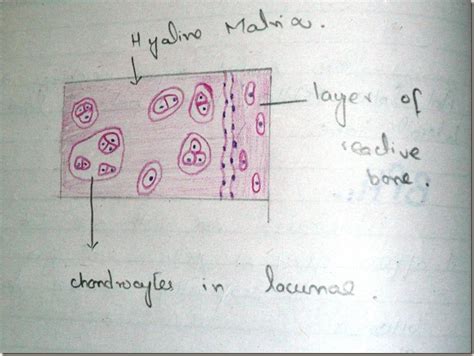 Hyaline Matrix.
layer of
reactive
bone.
chondrocytes in lacunae.